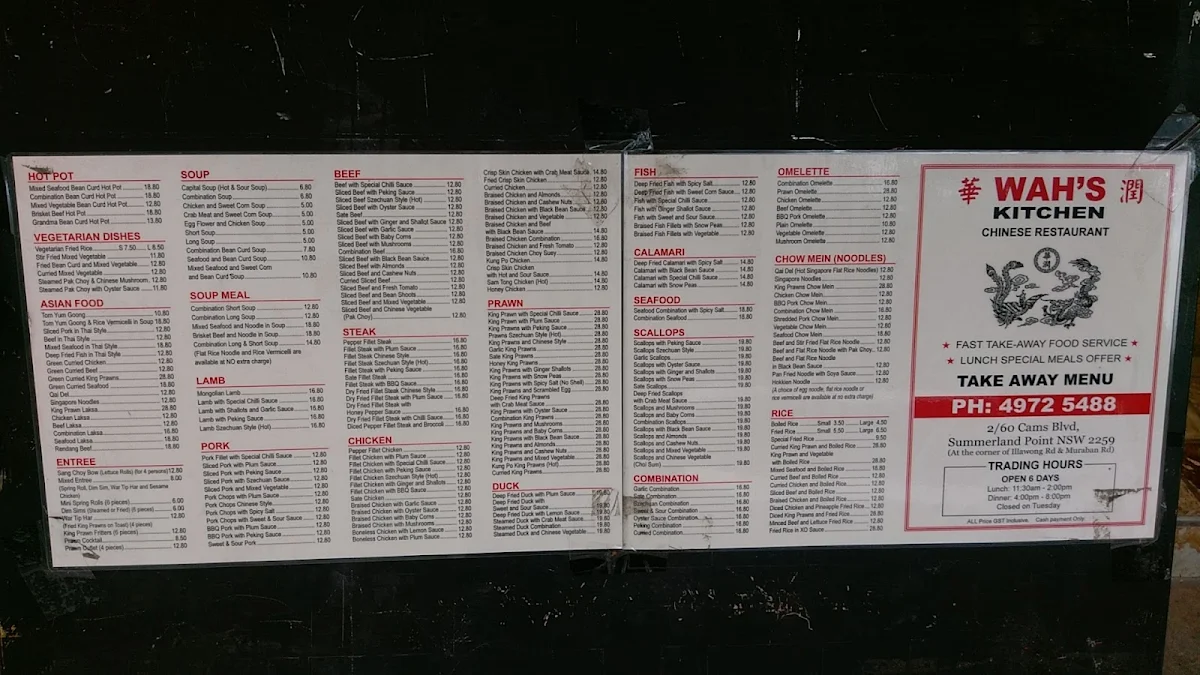 HOT POT
Mixed Seafood Bean Curd Hot Pot 18.80
Combination Bean Curd Hot Pot 18.80
Mixed Vegetable Bean Curd Hot Pot 12.80
Brisket Beef Hot Pot 18.80
Grandma Bean Curd Hot Pot 13.80
VEGETARIAN DISHES
Vegetarian Fried Rice S 7.50 L 8.50
Stir Fried Mixed Vegetable 11.80
Fried Bean Curd and Mixed Vegetable 12.80
Curried Mixed Vegetable 12.80
Steamed Pak Choy & Chinese Mushroom 12.80
Steamed Pak Choy with Oyster Sauce 11.80
ASIAN FOOD
Tom Yum Goong 10.80
Tom Yum Goong & Rice Vermicelli in Soup 18.80
Sliced Pork in Thai Style 12.80
Beef in Thai Style 12.80
Mixed Seafood in Thai Style
Deep Fried Fish in Thai Style
Green Curried Chicken 12.80
Green Curried Beef 12.80
Green Curried King Prawns 28.80
Green Curried Seafood
Qai Del 12.80
Singapore Noodles 12.80
King Prawn Laksa 28.80
Chicken Laksa 12.80
Beef Laksa 12.80
Combination Laksa 16.80
Seafood Laksa 18.80
Rendang Beef
ENTREE
Sang Choy Bow (Lettuce Rolls) (for 4 persons) 12.80
Mixed Entree 6.00
(Spring Roll, Dim Sim, War Tip Har and Sesame
Chicken)
Mini Spring Rolls (6 pieces) 6.00
Dim Sims (Steamed or Fried) (6 pieces) 6.00
War Tip Har 12.80
(Four King Prawns on Toast) (4 pieces)
King Prawn Fritters (6 pieces) 13.80
Prawn Cocktail 8.50
Prawn Cutlet (4 pieces) 12.80
SOUP
Capital Soup (Hot & Sour Soup) 6.80
Combination Soup 6.80
Chicken and Sweet Corn Soup 5.00
Crab Meat and Sweet Corn Soup 5.00
Egg Flower and Chicken Soup 5.00
Short Soup 5.00
Long Soup 5.00
Combination Bean Curd Soup 7.80
Seafood and Bean Curd Soup 10.80
Mixed Seafood and Sweet Corn
and Bean Curd Soup 10.80
SOUP MEAL
Combination Short Soup 12.80
Combination Long Soup 12.80
Mixed Seafood and Noodle in Soup 18.80
Brisket Beef and Noodle in Soup 18.80
Combination Long & Short Soup 14.80
(Flat Rice Noodle and Rice Vermicelli are
available at NO extra charge)
LAMB
Mongolian Lamb 16.80
Lamb with Special Chilli Sauce 16.80
Lamb with Shallots and Garlic Sauce 16.80
Lamb with Peking Sauce 16.80
Lamb Szechuan Style (Hot) 16.80
PORK
Pork Fillet with Special Chilli Sauce 12.80
Sliced Pork with Plum Sauce 12.80
Sliced Pork with Peking Sauce 12.80
Sliced Pork with Szechuan Sauce 12.80
Sliced Pork and Mixed Vegetable 12.80
Pork Chops with Plum Sauce 12.80
Pork Chops Chinese Style 12.80
Pork Chops with Spicy Salt 12.80
Pork Chops with Sweet & Sour Sauce 12.80
BBQ Pork with Plum Sauce 12.80
BBQ Pork with Peking Sauce 12.80
Sweet & Sour Pork 12.80
BEEF
Beef with Special Chilli Sauce 12.80
Sliced Beef with Peking Sauce 12.80
Sliced Beef Szechuan Style (Hot) 12.80
Sliced Beef with Oyster Sauce 12.80
Sate Beef 12.80
Sliced Beef with Ginger and Shallot Sauce 12.80
Sliced Beef with Garlic Sauce 12.80
Sliced Beef with Baby Corns 12.80
Sliced Beef with Mushrooms 12.80
Combination Beef 16.80
Sliced Beef with Black Bean Sauce 12.80
Sliced Beef with Almonds 12.80
Sliced Beef and Cashew Nuts 12.80
Curried Sliced Beef 12.80
Sliced Beef and Fresh Tomato 12.80
Sliced Beef and Bean Shoots 12.80
Sliced Beef and Mixed Vegetable 12.80
Sliced Beef and Chinese Vegetable
(Pak Choy) 12.80
STEAK
Pepper Fillet Steak 16.80
Fillet Steak with Plum Sauce 16.80
Fillet Steak Chinese Style 16.80
Fillet Steak Szechuan Style (Hot) 16.80
Fillet Steak with Peking Sauce 16.80
Sate Fillet Steak 16.80
Fillet Steak with BBQ Sauce 16.80
Dry Fried Fillet Steak Chinese Style 16.80
Dry Fried Fillet Steak with Plum Sauce 16.80
Dry Fried Fillet Steak with
Honey Pepper Sauce 16.80
Dry Fried Fillet Steak with Chilli Sauce 16.80
Diced Pepper Fillet Steak and Broccoli 16.80
CHICKEN
Pepper Fillet Chicken 12.80
Fillet Chicken with Plum Sauce 12.80
Fillet Chicken with Special Chilli Sauce 12.80
Fillet Chicken with Peking Sauce 12.80
Fillet Chicken Szechuan Style (Hot) 12.80
Fillet Chicken with Ginger and Shallots 12.80
Fillet Chicken with BBQ Sauce 12.80
Sate Chicken 12.80
Braised Chicken with Garlic Sauce 12.80
Braised Chicken with Oyster Sauce 12.80
Braised Chicken with Baby Corns 12.80
Braised Chicken with Mushrooms 12.80
Boneless Chicken with Lemon Sauce 12.80
Boneless Chicken with Plum Sauce 12.80
Crisp Skin Chicken with Crab Meat Sauce 14.80
Fried Crisp Skin Chicken 12.80
Curried Chicken 12.80
Braised Chicken and Almonds 12.80
Braised Chicken and Cashew Nuts 12.80
Braised Chicken with Black Bean Sauce 12.80
Braised Chicken and Vegetable 12.80
Braised Chicken and Beef
with Black Bean Sauce 14.80
Braised Chicken Combination 16.80
Braised Chicken and Fresh Tomato 12.80
Braised Chicken Choy Suey 12.80
Kung Po Chicken 14.80
Crisp Skin Chicken
with Hot and Sour Sauce 14.80
Sam Tong Chicken (Hot) 14.80
Honey Chicken 12.80
PRAWN
King Prawn with Special Chilli Sauce 28.80
King Prawn with Plum Sauce 28.80
King Prawn with Peking Sauce 28.80
Prawns Szechuan Style (Hot) 28.80
King Prawns and Chinese Style 28.80
Garlic King Prawns 28.80
Sate King Prawns 28.80
Honey King Prawns 28.80
King Prawns with Ginger Shallots 28.80
King Prawns with Snow Peas 28.80
King Prawns with Spicy Salt (No Shell) 28.80
King Prawns and Scrambled Egg 28.80
Deep Fried King Prawns
with Crab Meat Sauce 28.80
King Prawns with Oyster Sauce 28.80
Combination King Prawns 28.80
King Prawns and Mushrooms 28.80
King Prawns and Baby Corns 28.80
King Prawns with Black Bean Sauce 28.80
King Prawns and Almonds 28.80
King Prawns and Cashew Nuts 28.80
King Prawns and Mixed Vegetable 28.80
Kung Po King Prawns (Hot) 28.80
Curried King Prawns 28.80
DUCK
Deep Fried Duck with Plum Sauce
Deep Fried Duck with
Sweet and Sour Sauce
Deep Fried Duck with Lemon Sauce
Steamed Duck with Crab Meat Sauce
Steamed Duck Combination
Steamed Duck and Chinese Vegetable
FISH
Deep Fried Fish with Spicy Salt 12.80
Deep Fried Fish with Sweet Corn Sauce 12.80
Fish with Special Chilli Sauce 12.80
Fish with Ginger Shallot Sauce 12.80
Fish with Sweet and Sour Sauce 12.80
Braised Fish Fillets with Snow Peas 12.80
Braised Fish Fillets with Vegetable 12.80
CALAMARI
Deep Fried Calamari with Spicy Salt 14.80
Calamari with Black Bean Sauce 14.80
Calamari with Special Chilli Sauce 14.80
Calamari with Snow Peas 14.80
SEAFOOD
Seafood Combination with Spicy Salt 18.80
Combination Seafood 18.80
SCALLOPS
Scallops with Peking Sauce 19.80
Scallops Szechuan Style 19.80
Garlic Scallops 19.80
Scallops with Oyster Sauce 19.80
Scallops with Ginger and Shallots 19.80
Scallops with Snow Peas 19.80
Sate Scallops 19.80
Deep Fried Scallops
with Crab Meat Sauce 19.80
Scallops and Mushrooms 19.80
Scallops and Baby Corns 19.80
Combination Scallops 19.80
Scallops with Black Bean Sauce 19.80
Scallops and Almonds 19.80
Scallops and Cashew Nuts 19.80
Scallops and Mixed Vegetable 19.80
Scallops and Chinese Vegetable
(Choi Sum) 19.80
COMBINATION
Garlic Combination 16.80
Sate Combination 16.80
Szechuan Combination 16.80
Sweet & Sour Combination 16.80
Oyster Sauce Combination 16.80
Peking Combination 16.80
Curried Combination 16.80
OMELETTE
Combination Omelette 16.80
Prawn Omelette 28.80
Chicken Omelette 12.80
Beef Omelette 12.80
BBQ Pork Omelette 12.80
Plain Omelette 10.80
Vegetable Omelette 12.80
Mushroom Omelette 12.80
CHOW MEIN (NOODLES)
Qai Del (Hot Singapore Flat Rice Noodles) 12.80
Singapore Noodles 12.80
King Prawns Chow Mein 28.80
Chicken Chow Mein 12.80
BBQ Pork Chow Mein 12.80
Combination Chow Mein 16.80
Shredded Pork Chow Mein 12.80
Vegetable Chow Mein 12.80
Seafood Chow Mein 18.80
Beef and Stir Fried Flat Rice Noodle 12.80
Beef and Flat Rice Noodle with Pak Choy 12.80
Beef and Flat Rice Noodle
in Black Bean Sauce 12.80
Pan Fried Noodle with Soya Sauce 12.80
Hokkien Noodle 12.80
(A choice of egg noodle, flat rice noodle or
rice vermicelli are available at no extra charge)
RICE
Boiled Rice Small 3.50 Large 4.50
Fried Rice Small 5.50 Large 6.50
Special Fried Rice 9.50
Curried King Prawn and Boiled Rice 28.80
King Prawn and Vegetable
with Boiled Rice 28.80
Mixed Seafood and Boiled Rice 18.80
Curried Beef and Boiled Rice 12.80
Curried Chicken and Boiled Rice 12.80
Sliced Beef and Boiled Rice 12.80
Braised Chicken and Boiled Rice 12.80
Diced Chicken and Pineapple Fried Rice 12.80
Diced King Prawns and Fried Rice 28.80
Minced Beef and Lettuce Fried Rice 12.80
Fried Rice in XO Sauce 12.80
華 WAH'S 潤
KITCHEN
CHINESE RESTAURANT
華潤
★ FAST TAKE-AWAY FOOD SERVICE ★
★ LUNCH SPECIAL MEALS OFFER ★
TAKE AWAY MENU
PH: 4972 5488
2/60 Cams Blvd,
Summerland Point NSW 2259
(At the corner of Illawong Rd & Muraban Rd)
TRADING HOURS
OPEN 6 DAYS
Lunch: 11:30am - 2:00pm
Dinner: 4:00pm - 8:00pm
Closed on Tuesday
ALL Price GST Inclusive. Cash payment Only.